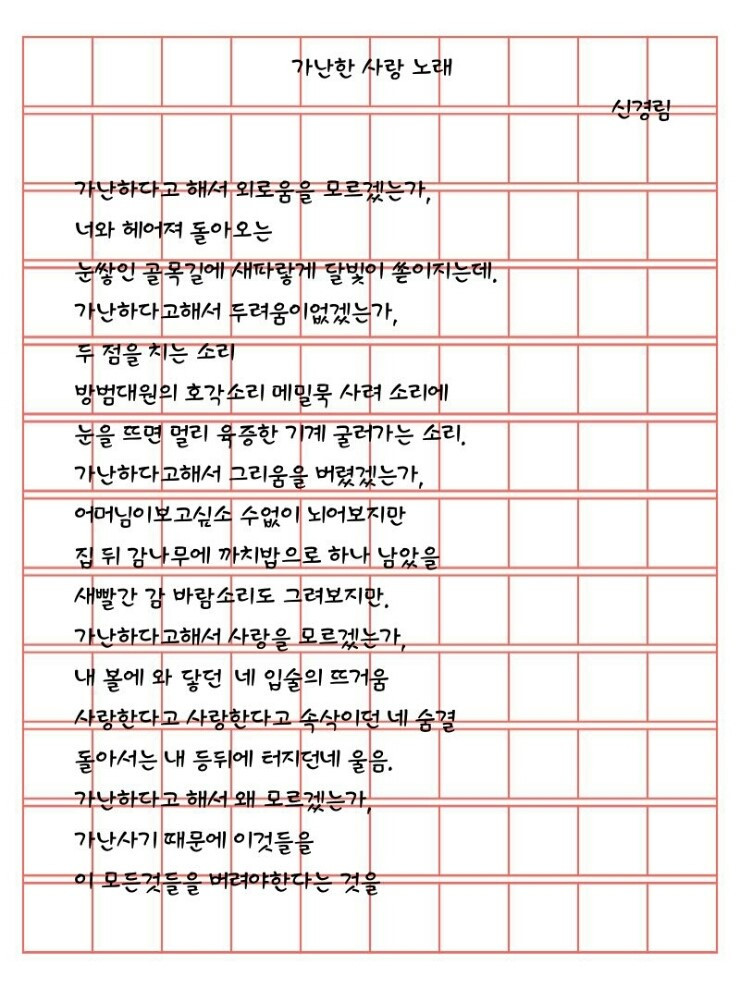 가난한 사랑 노래
신경림
가난하다고 해서 외로움을 모르겠는가,
너와 헤어져 돌아오는
눈쌓인 골목길에 새파랗게 달빛이 쏟이지는데.
가난하다고해서 두려움이없겠는가,
두 점을 치는 소리
방범대원의 호각소리 메밀묵 사려 소리에
눈을 뜨면 멀리 육중한 기계 굴러가는 소리.
가난하다고해서 그리움을 버렸겠는가,
어머님이보고싶소 수없이 뇌어보지만
집 뒤 감나무에 까치밥으로 하나 남았을
새빨간 감 바람소리도 그려보지만.
가난하다고해서 사랑을 모르겠는가,
내 볼에 와 닿던 네 입술의 뜨거움
사랑한다고 사랑한다고 속삭이던 네 숨결
돌아서는 내 등뒤에 터지던네 울음.
가난하다고 해서 왜 모르겠는가,
가난사기 때문에 이것들을
이 모든것들을 버려야한다는 것을